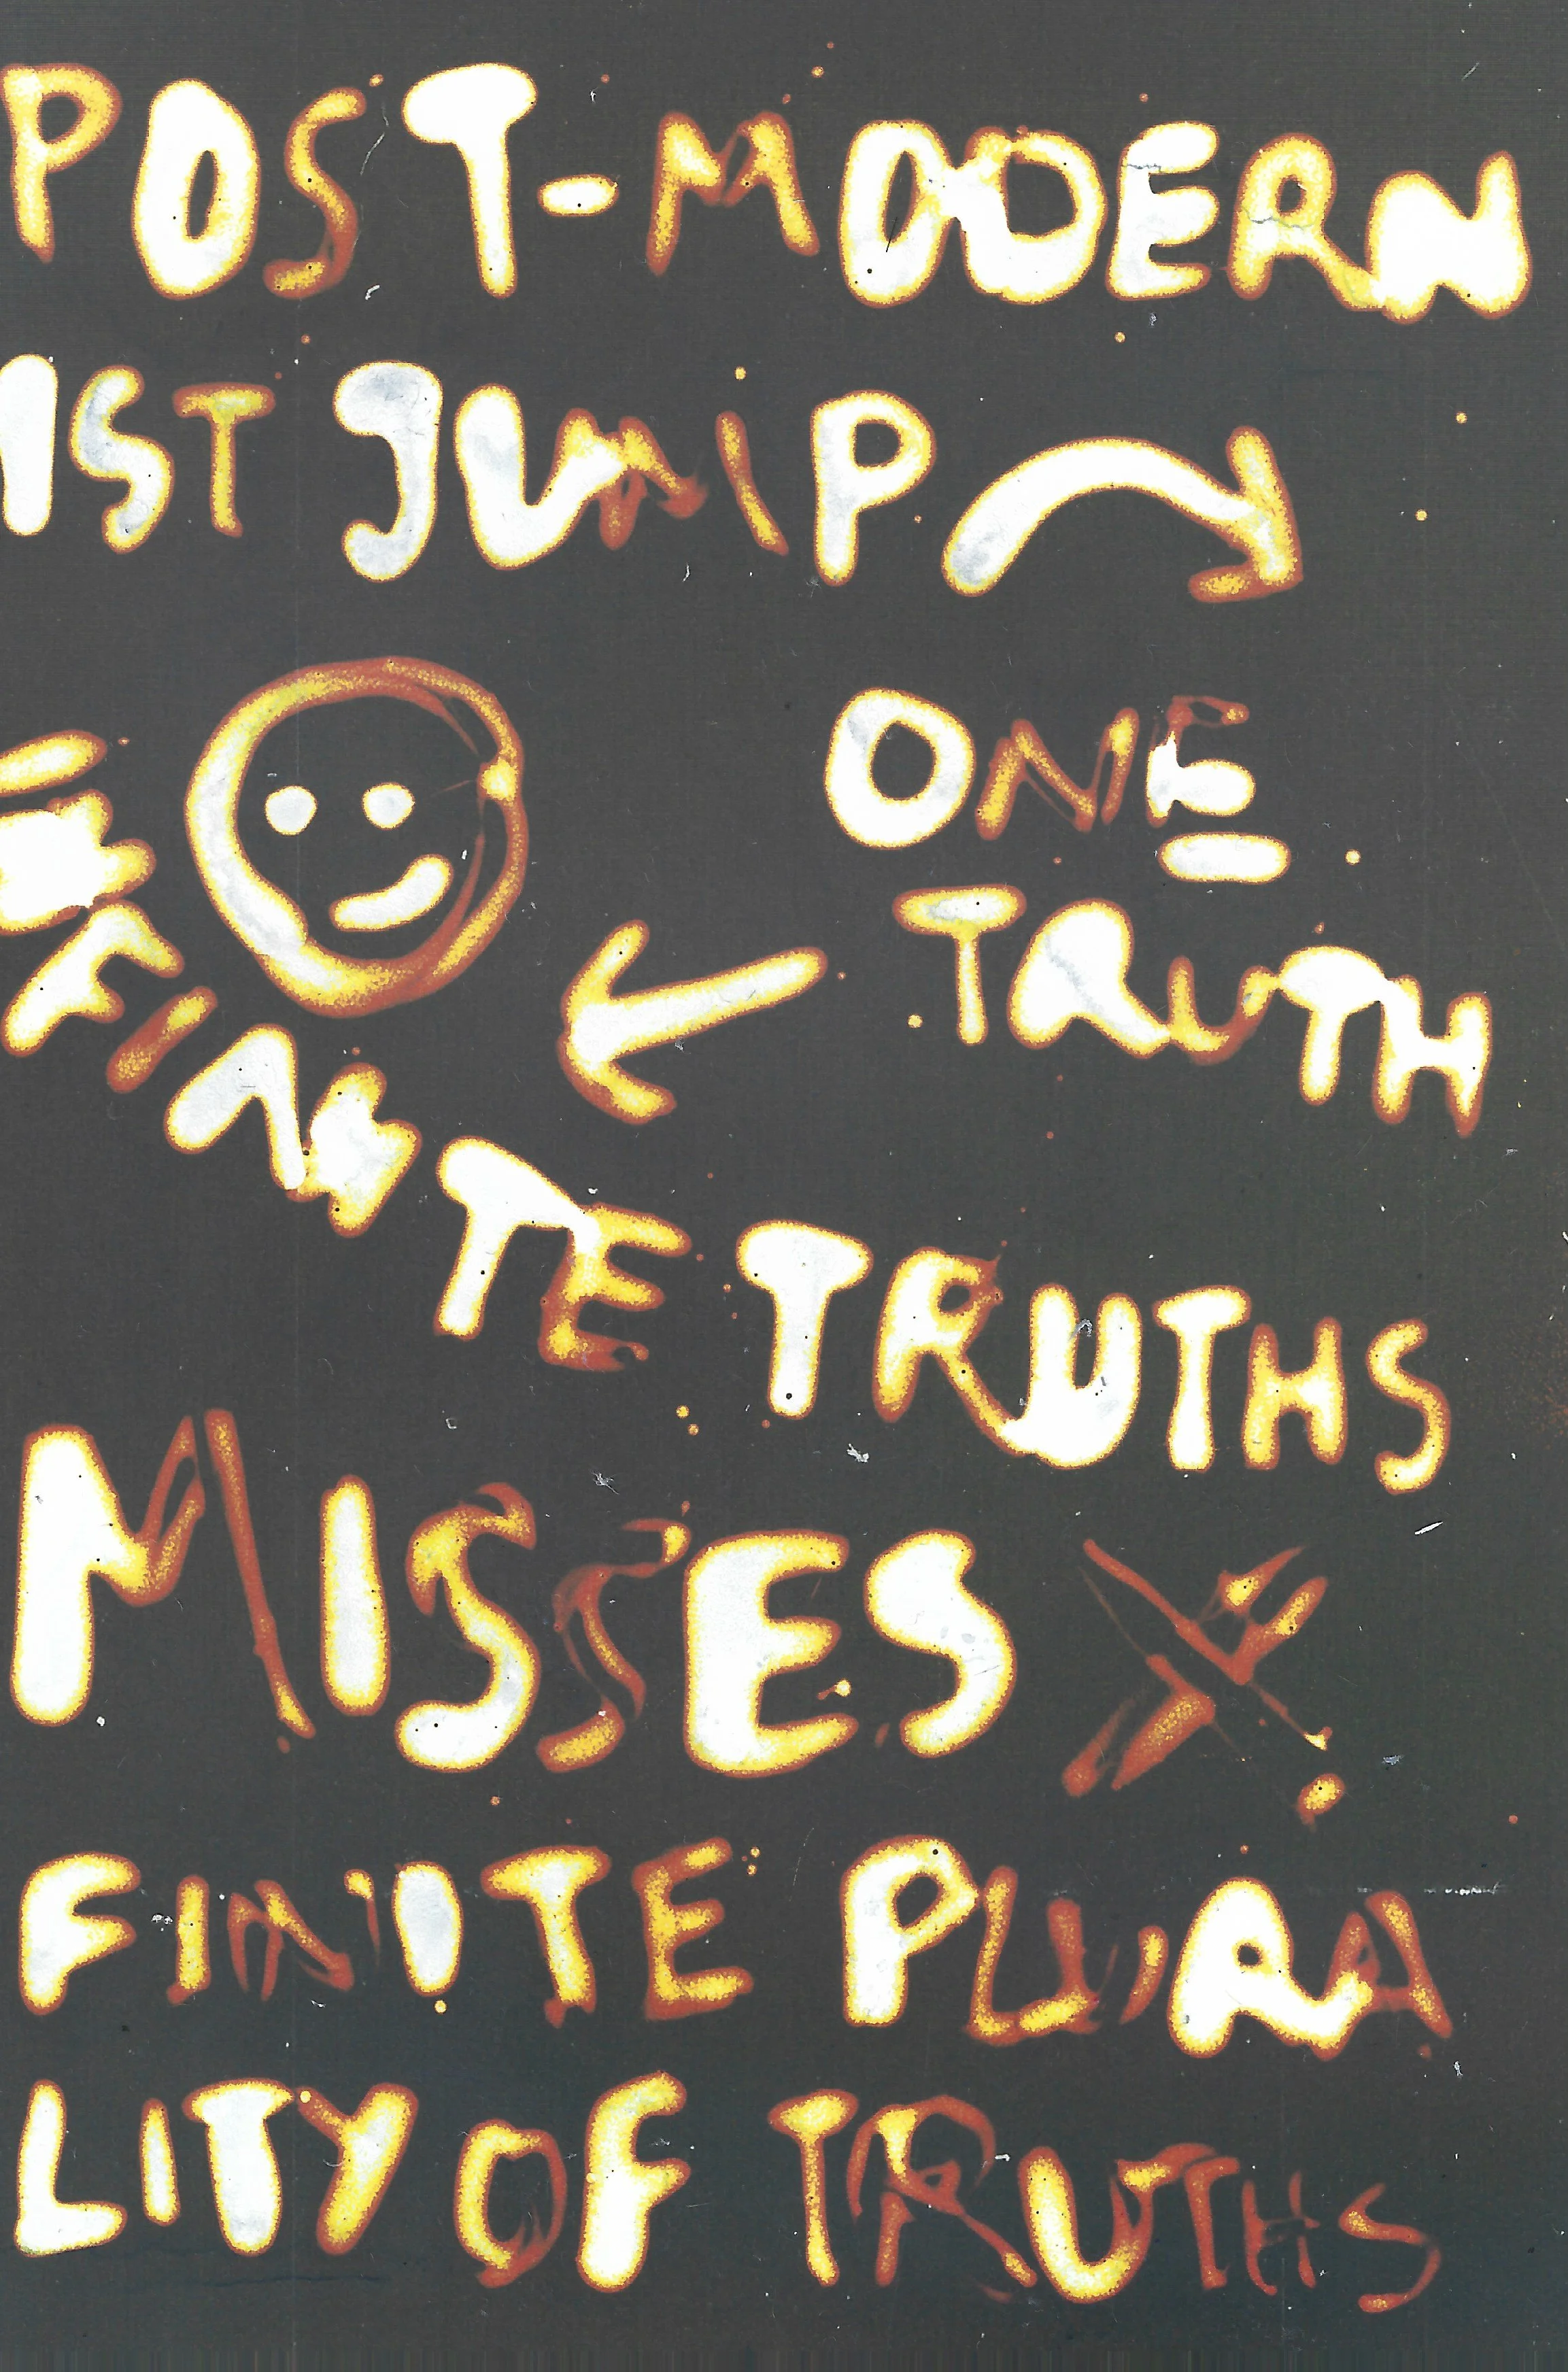 POST-MODERN
IST JUMP
ONE
TRUTH
INFINITE TRUTHS
MISSES
FINITE PLURA
LITY OF TRUTHS